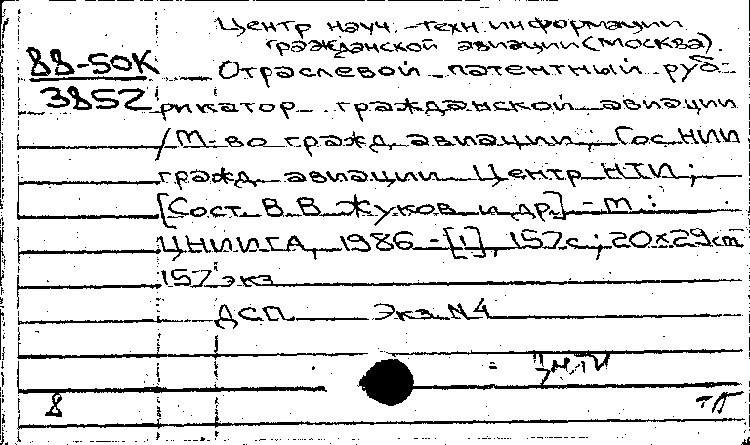 Центр науч.-техн. информации
гражданской авиации (Москва).
88-50К
3852
Отраслевой патентный руб-
рикатор гражданской авиации
/М-во гражд. авиации; ГосНИИ
гражд. авиации. Центр НТИ;
[Сост. В.В. Жуков и др.] - М.:
ЦНИИГА, 1986 - [1], 157 с; 20х29 cm
157 экз
ДСП Экз N 4
8